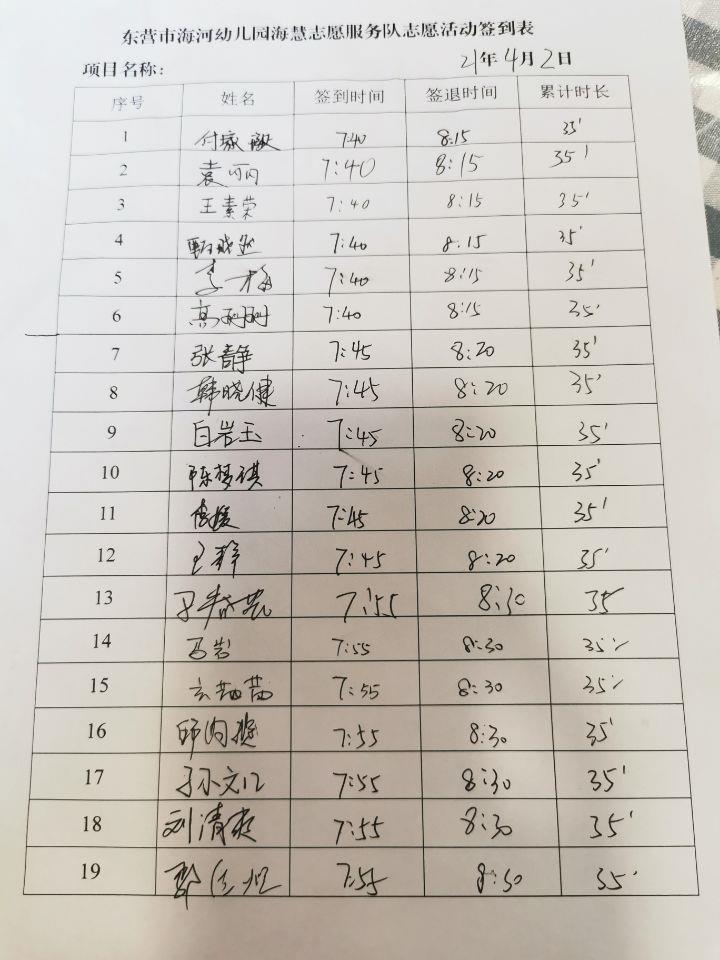 东营市海河幼儿园海慧志愿服务队志愿活动签到表
项目名称： 21年4月2日
序号 姓名 签到时间 签退时间 累计时长
1 付 7:40 8:15 35'
2 袁丽丽 7:40 8:15 35'
3 王素荣 7:40 8:15 35'
4 7:40 8:15 35'
5 李梅 7:40 8:15 35'
6 高 7:40 8:15 35'
7 张静 7:45 8:20 35'
8 韩晓健 7:45 8:20 35'
9 白岩玉 7:45 8:20 35'
10 陈梦琪 7:45 8:20 35'
11 7:45 8:20 35'
12 王静 7:45 8:20 35'
13 7:55 8:30 35
14 马岩 7:55 8:30 35'
15 7:55 8:30 35'
16 7:55 8:30 35'
17 孙文 7:55 8:30 35'
18 刘清爽 7:55 8:30 35'
19 7:55 8:30 35'